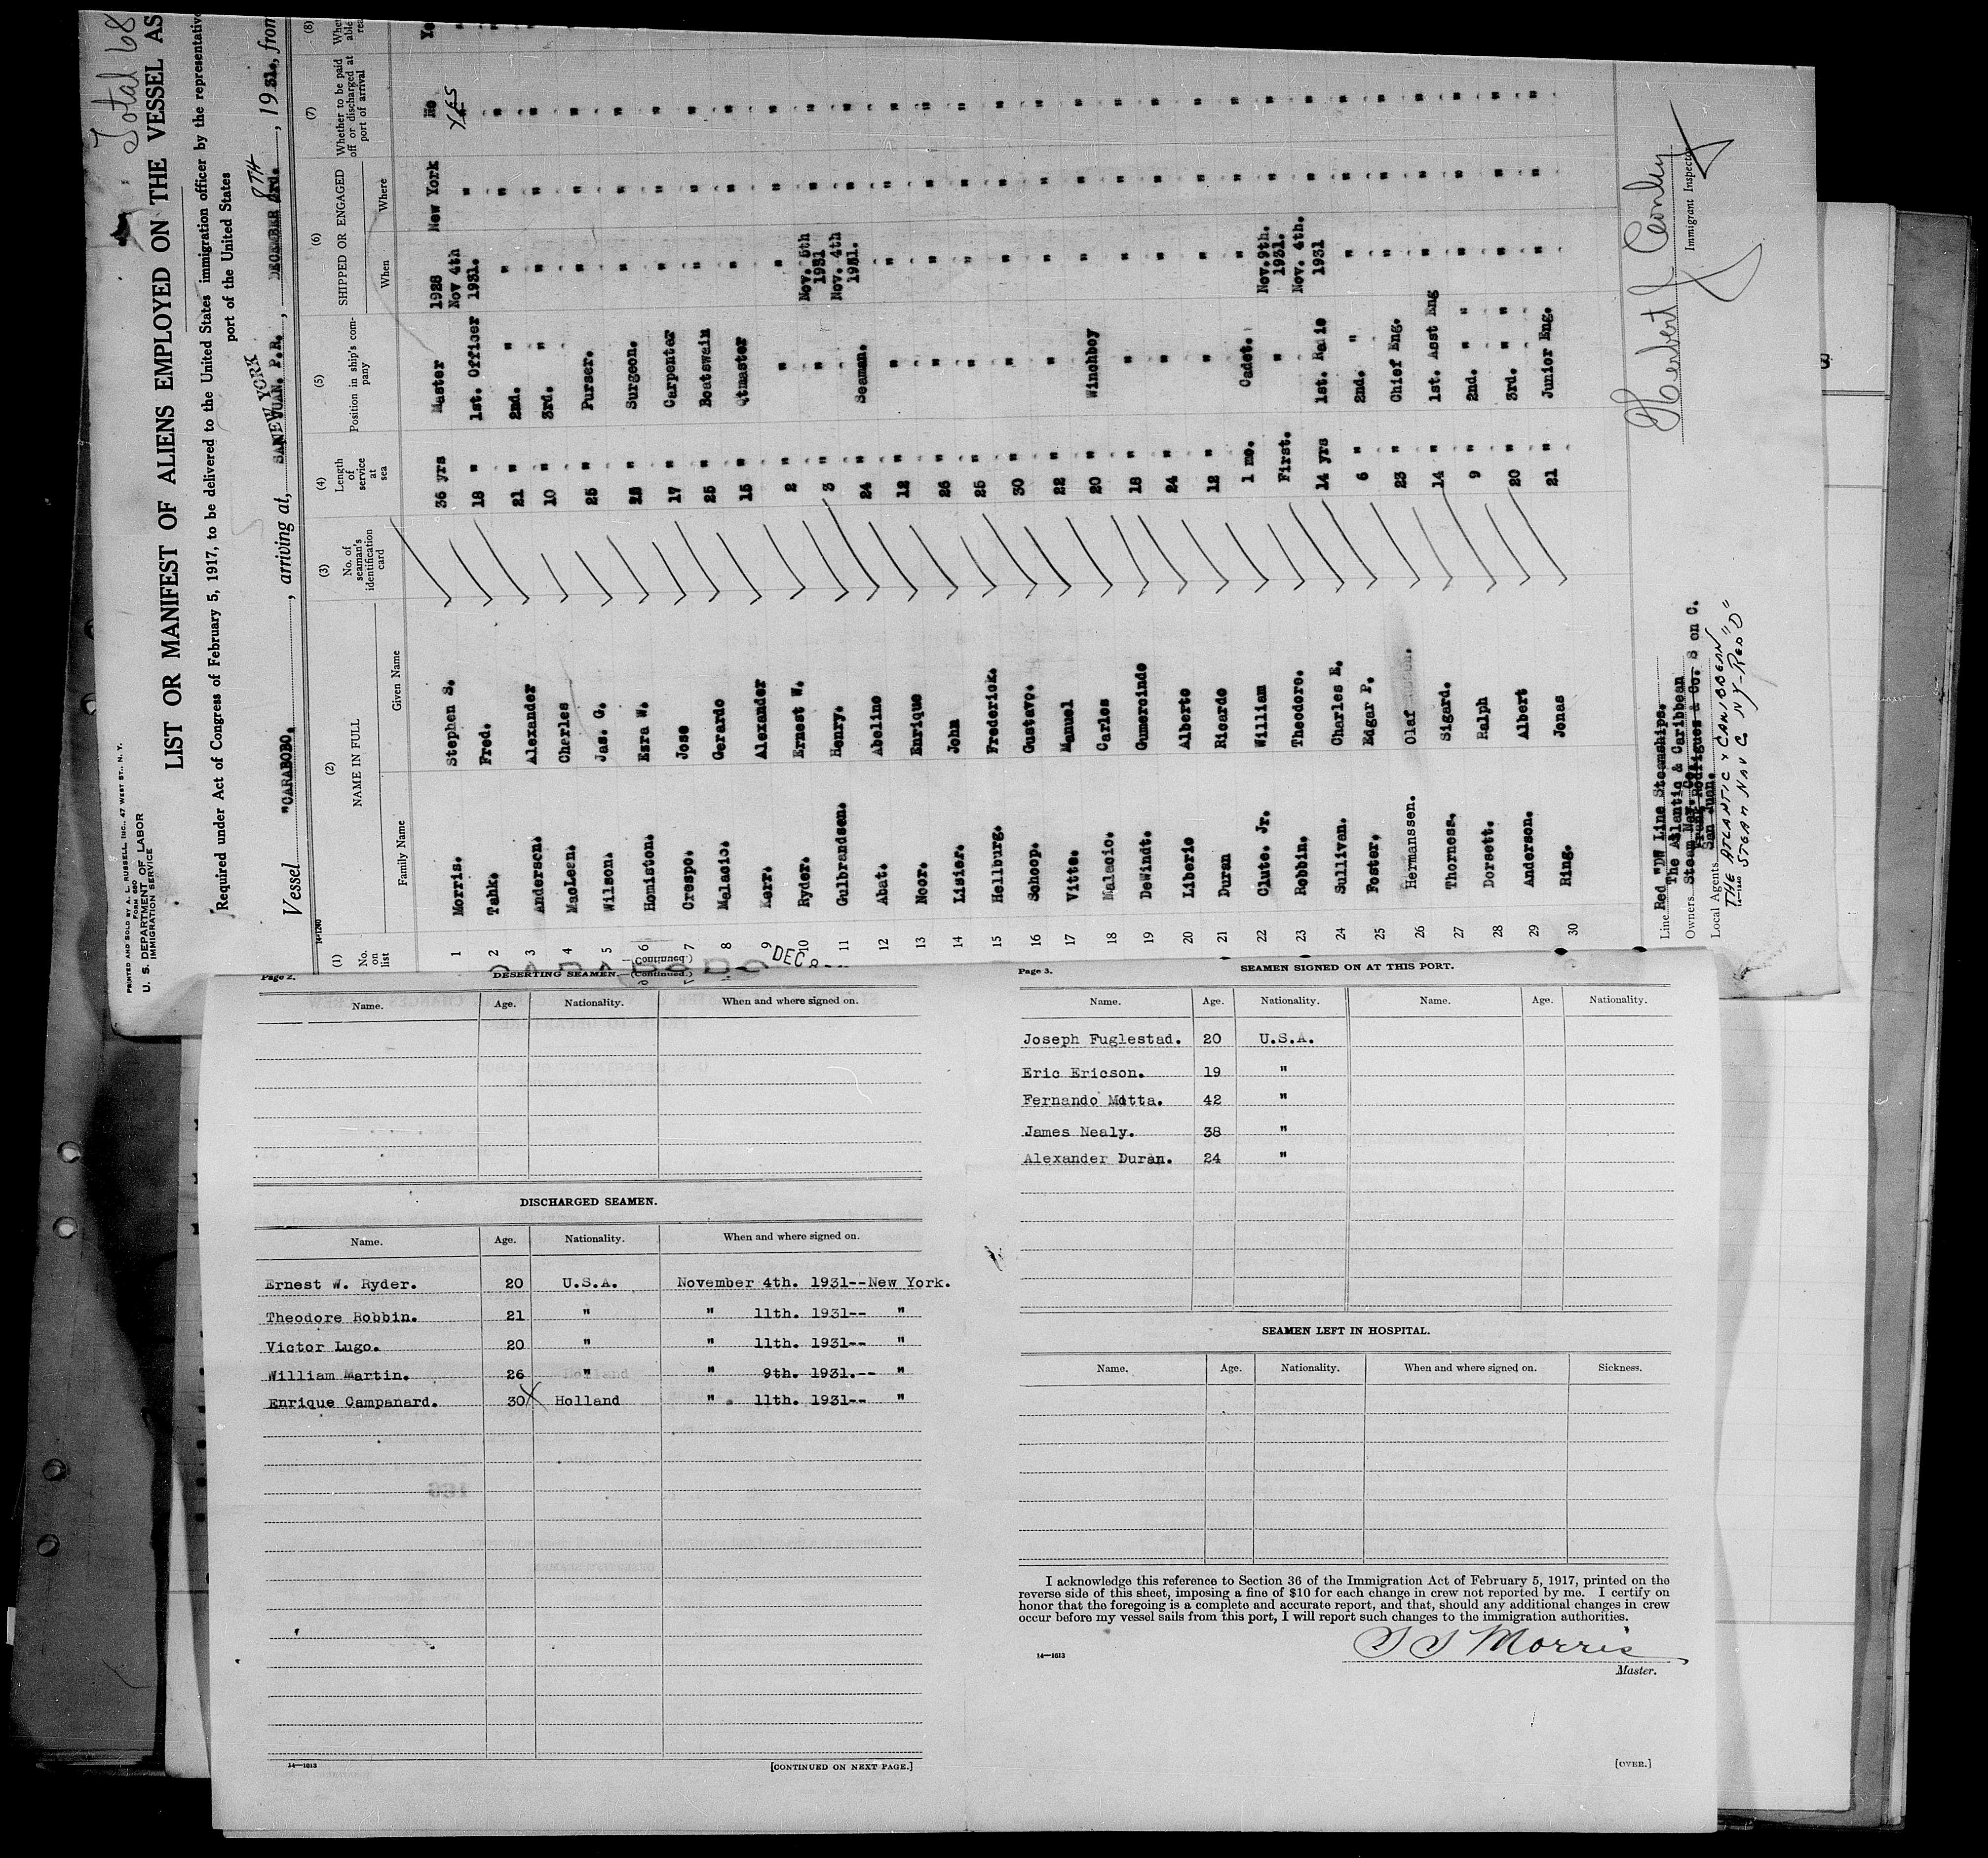 Total 68
PRINTED AND SOLD BY A. L. RUSSELL, INC., 47 WEST ST., N. Y.
FORM 680
U. S. DEPARTMENT OF LABOR
IMMIGRATION SERVICE
LIST OR MANIFEST OF ALIENS EMPLOYED ON THE VESSEL AS
Required under Act of Congress of February 5, 1917, to be delivered to the United States immigration officer by the representative
port of the United States
Vessel "CARABOBO. , arriving at, SAN JUAN. P.R. NEW YORK , DECEMBER 3rd. 8TH , 1931., from
14-1240
(1) (2) (3) (4) (5) (6) (7) (8)
No. on list NAME IN FULL No. of seaman's identification card Length of service at sea Position in ship's company SHIPPED OR ENGAGED Whether to be paid off or discharged at port of arrival
Family Name Given Name When Where
1 Morris. Stephen S. 36 yrs Master 1928 New York No Ye
2 Tak. Fred. 18 " 1st. Officer Nov 4th 1931. " Yes
3 Andersen. Alexander 21 " 2nd. " " " "
4 MacLeen. Charles 10 " 3rd. " " " "
5 Wilson. Jas. G. 25 " Purser. " " "
6 Homiston. Ezra W. 28 " Surgeon. " " "
7 Crespo. Jose 17 " Carpenter " " "
8 Malacio. Gerardo 25 " Boatswain " " "
9 Kerr. Alexander 15 " Qtmaster " " "
10 Ryder. Ernest W. 2 " " " " "
11 Gulbrandsen. Henry. 3 " " Nov. 5th 1931 " "
12 Abat. Abeline 24 " Seaman. Nov. 4th 1931. " "
13 Noor. Enrique 12 " " " " "
14 Lisier. John 26 " " " " "
15 Hellburg. Frederick. 25 " " " " "
16 Schoop. Gustavo. 30 " " " " "
17 Vitte. Manuel 22 " " " " "
18 Malacio. Carlos 20 " Winchboy " " "
19 DeWindt. Gumercindo 18 " " " " "
20 Liberio Alberto 24 " " " " "
21 Duran Ricardo 12 " " " " "
22 Clute. Jr. William 1 mo. Cadet. " " "
23 Robbin. Theodore. First. " Nov. 9th. 1931. " "
24 Sullivan. Charles E. 14 yrs 1st. Radio Nov. 4th. 1931 " "
25 Foster. Edgar P. 6 " 2nd. " " " "
26 Hermanssen. Olaf 23 " Chief Eng. " " "
27 Thorness. Sigard. 14 " 1st. Asst Eng " " "
28 Dorsett. Ralph 9 " 2nd. " " " " "
29 Anderson. Albert 20 " 3rd. " " " " "
30 Ring. Jonas 21 " Junior Eng. " " "
DEC 8
Line Red "D" Line Steamships.
Owners The Atlantic & Caribbean
Steam Nav. Co.
Local Agents Frank Rodriguez & Co. S en C.
San Juan.
THE ATLANTIC & CARIBBEAN
STEAM NAV C NY-RED "D"
Herbert J Conley
Immigrant Inspector
Page 2.
DESERTING SEAMEN.—(Continued.)
Name. Age. Nationality. When and where signed on.
DISCHARGED SEAMEN.
Name. Age. Nationality. When and where signed on.
Ernest W. Ryder. 20 U.S.A. November 4th. 1931--New York.
Theodore Robbin. 21 " " 11th. 1931-- "
Victor Lugo. 20 " " 11th. 1931-- "
William Martin. 26 " " 9th. 1931.-- "
Enrique Campanard. 30 X Holland " 11th. 1931-- "
14—1613
[CONTINUED ON NEXT PAGE.]
Page 3.
SEAMEN SIGNED ON AT THIS PORT.
Name. Age. Nationality. Name. Age. Nationality.
Joseph Fuglestad. 20 U.S.A.
Eric Ericson. 19 "
Fernando Motta. 42 "
James Nealy. 38 "
Alexander Duran. 24 "
SEAMEN LEFT IN HOSPITAL.
Name. Age. Nationality. When and where signed on. Sickness.
I acknowledge this reference to Section 36 of the Immigration Act of February 5, 1917, printed on the
reverse side of this sheet, imposing a fine of $10 for each change in crew not reported by me. I certify on
honor that the foregoing is a complete and accurate report, and that, should any additional changes in crew
occur before my vessel sails from this port, I will report such changes to the immigration authorities.
S S Morris
Master.
14—1613
[OVER.]